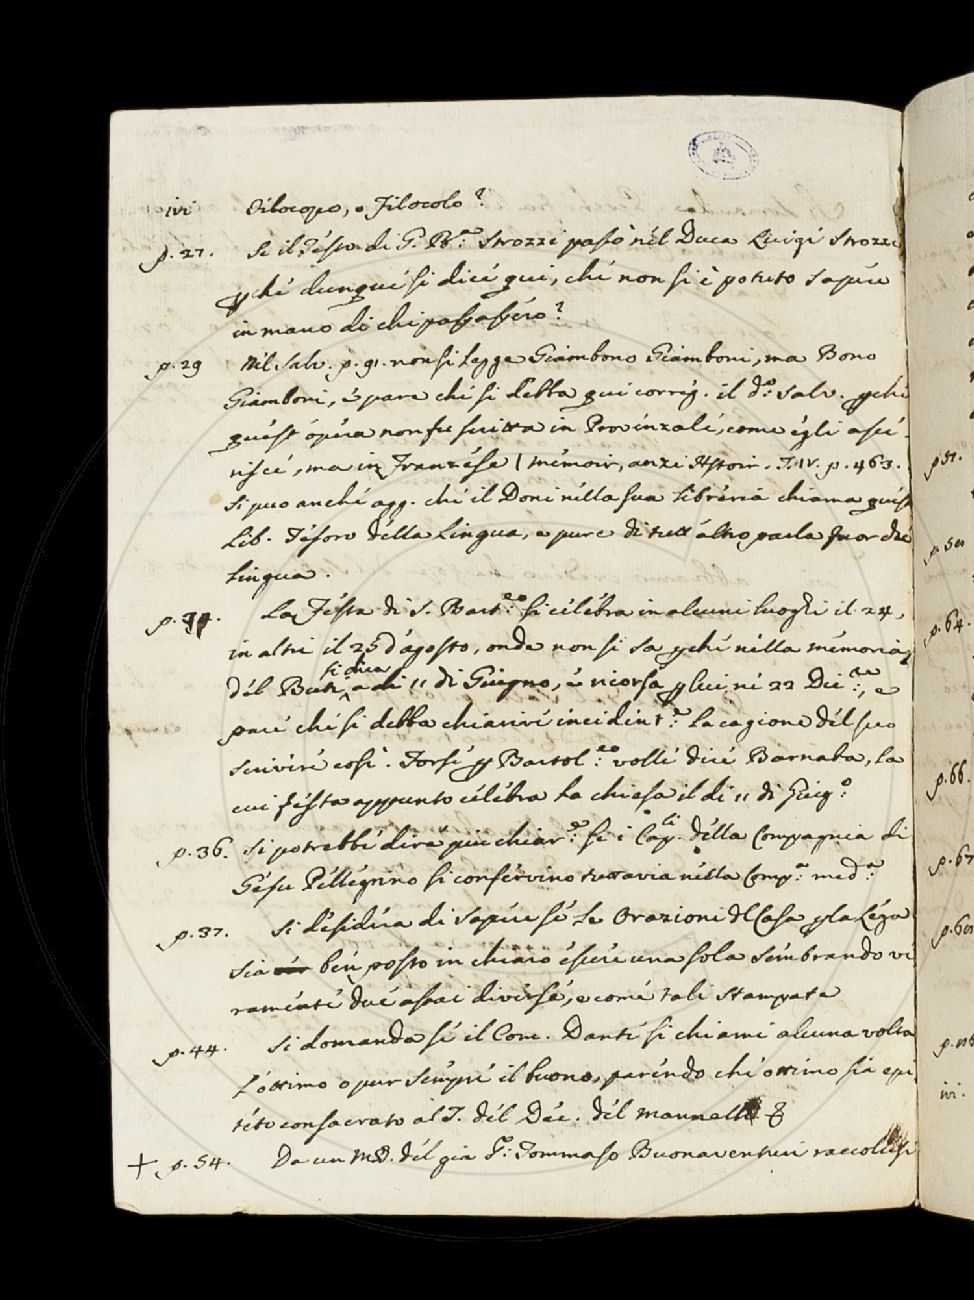 ivi Filocopo, o Filocolo?
p. 27. Se il Testo di G. Bã. Strozzi passò nel Duca Luigi Strozzi
pchè dunque si dice qui, che non si è potuto sapere
in mano di chi passassero?
p. 29 Nel Salv. p. 91. non si legge Giambono Giamboni, ma Bono
Giamboni, e pare che si debba qui correg. il dº. Salv. pchè
quest' opera non fu scritta in Provenzale, come egli asse-
risce, ma in Franzese / memoir, anzi Histoir. T. IV. p. 463.
Si può anche agg. che il Doni nella sua Libreria chiama quest
Lib. Tesoro della Lingua, e pure di tutt' altro parla fuor che
Lingua.
p. 34. La Festa di S. Bartºº. si celebra in alcuni luoghi il 24,
in altri il 25 d'agosto, onde non si sa pchè nella memoria
del
si dica
a dì 11 di Giugno, e ricorsa p lui ne 22 Dec.re, e
pare che si debba chiarire incident.e la cagione del suo
scrivere così. Forse p Bartol.eo volle dire Barnaba, la
cui festa appunto celebra la chiesa il dì 11 di Giugº.
p. 36. Si potrebbe dire più chiar.e se i Cap.li della Compagnia di
Gesu Pellegrino si conservino tuttavia nella Comp.a med.a
p. 37. Si desidera di sapere se le Orazioni del Casa p la Lega
sia ben posto in chiaro essere una sola sembrando ve
ramente due assai diverse, e come tali stampate
p. 44. Si domanda se il Com. Dante si chiami alcuna volta
L'ottimo o pur sempre il buono, parendo che ottimo sia epi
teto consacrato al T. del Dec. del Mannelli
+ p. 54. Da un MS. del già Sº. Tommaso Buonaventuri raccoltesi
p. 51.
p. 64.
p. 66.
p. 67
ivi.